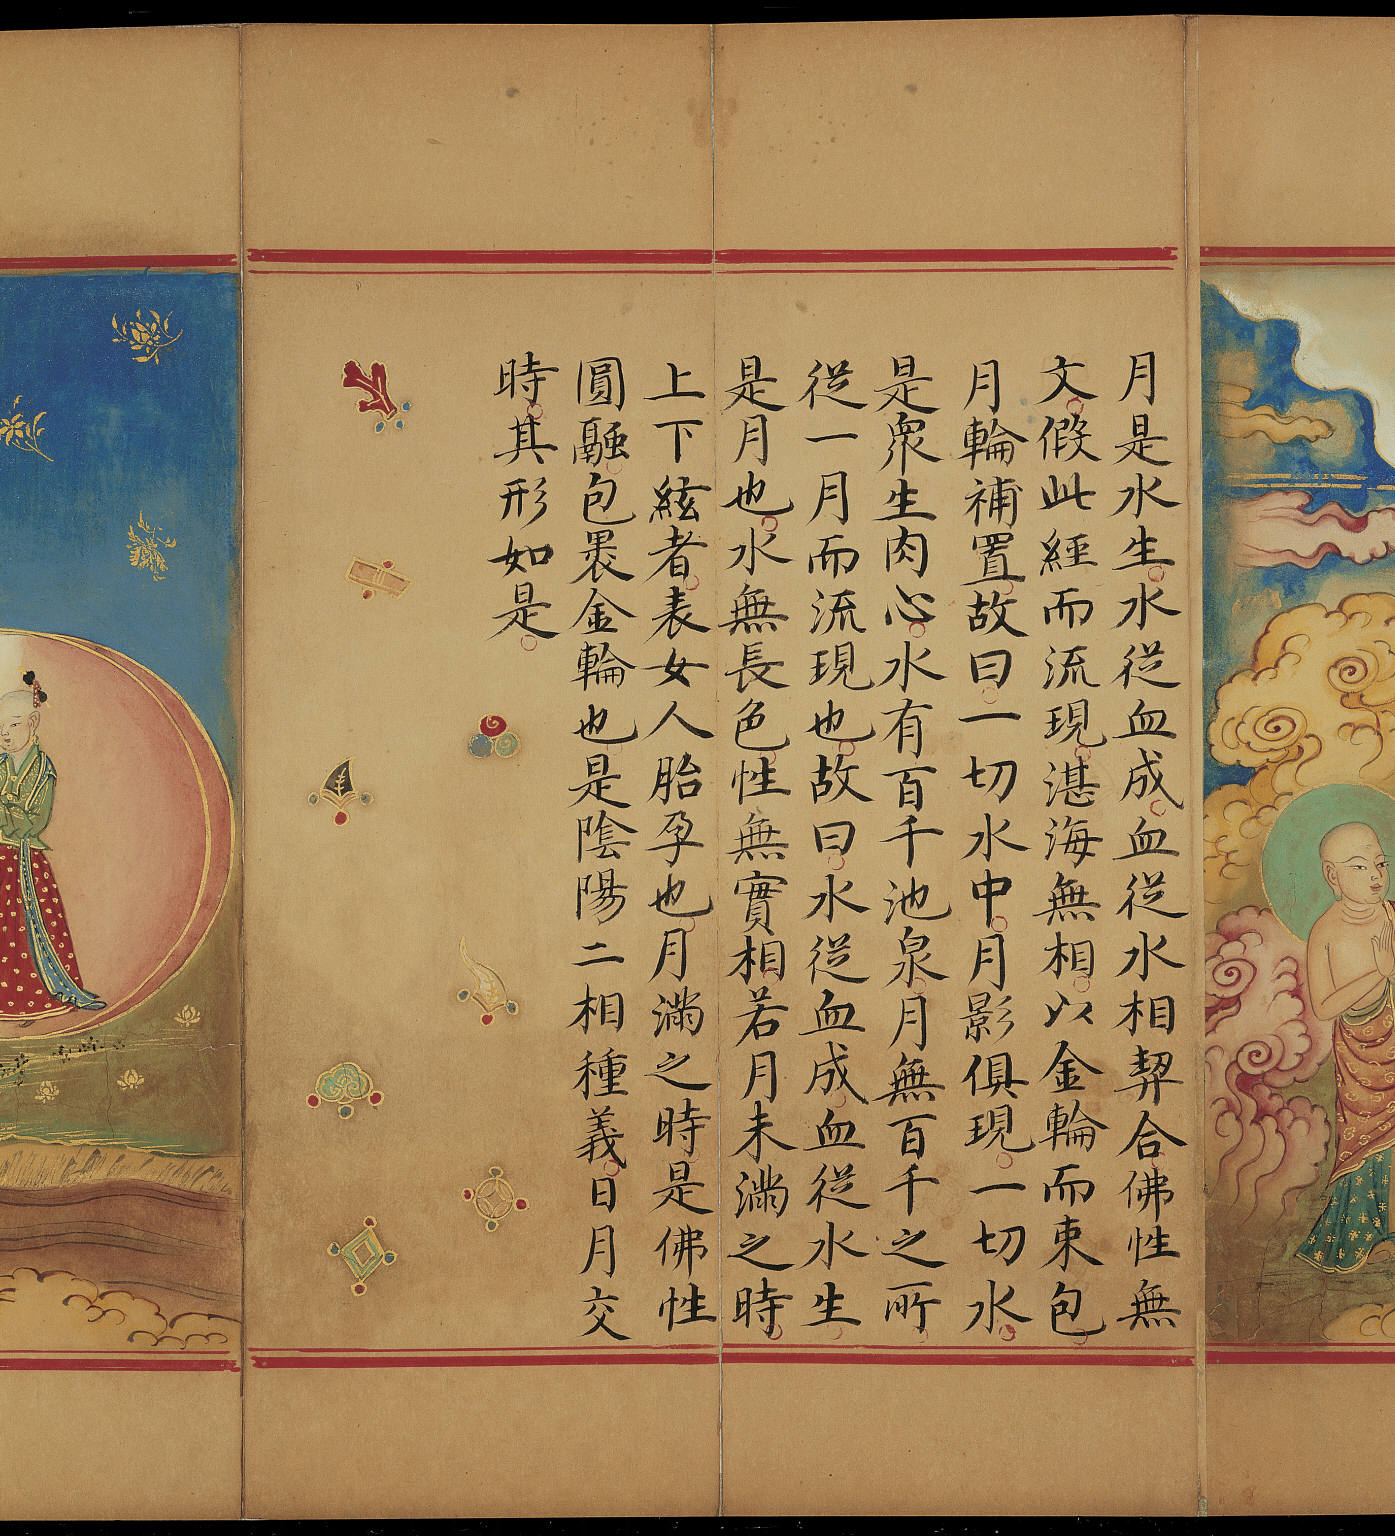 月是水生水従血成血従水相契合佛性無
文假此經而流現湛海無相以金輪而東包
月輪補置故曰一切水中月影俱現一切水
是衆生肉心水有百千池泉月無百千之所
従一月而流現也故曰水従血成血従水生
是月也水無長色性無實相若月未滿之時
上下絃者表女人胎孕也月滿之時是佛性
圓融包褁金輪也是陰陽二相種義日月交
時其形如是